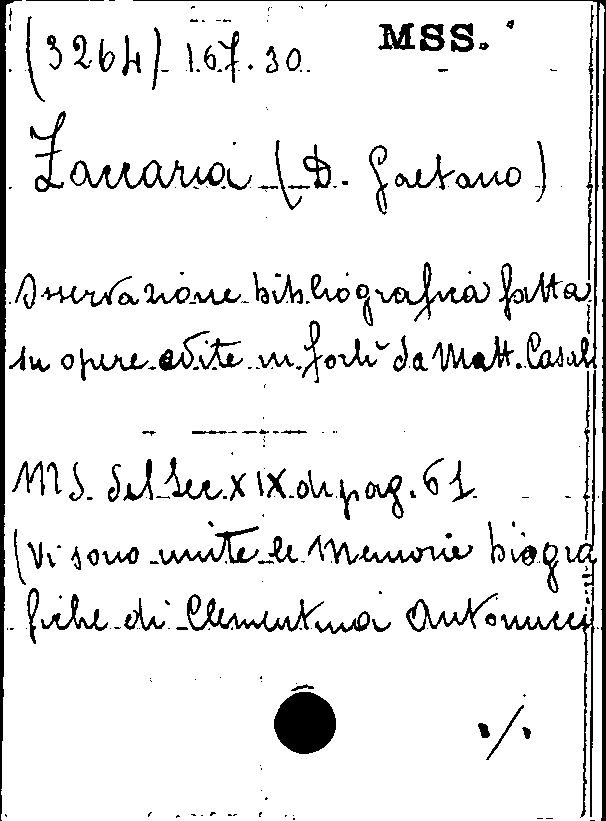 (3264) 167.30 MSS.
Zaccaria (D. Gaetano)
Osservazione bibliografica fatta
su opere edite in Forlì da Matt. Casali
MS. del Sec. XIX di pag. 61
(Vi sono unite le Memorie biogra
fiche di Clementina Antonucci
./.